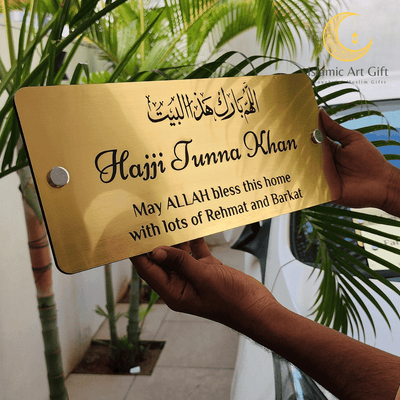 Islamic Art Gift
اللهم بارك هذا البيت
Hajji Tunna Khan
May ALLAH bless this home
with lots of Rehmat and Barkat